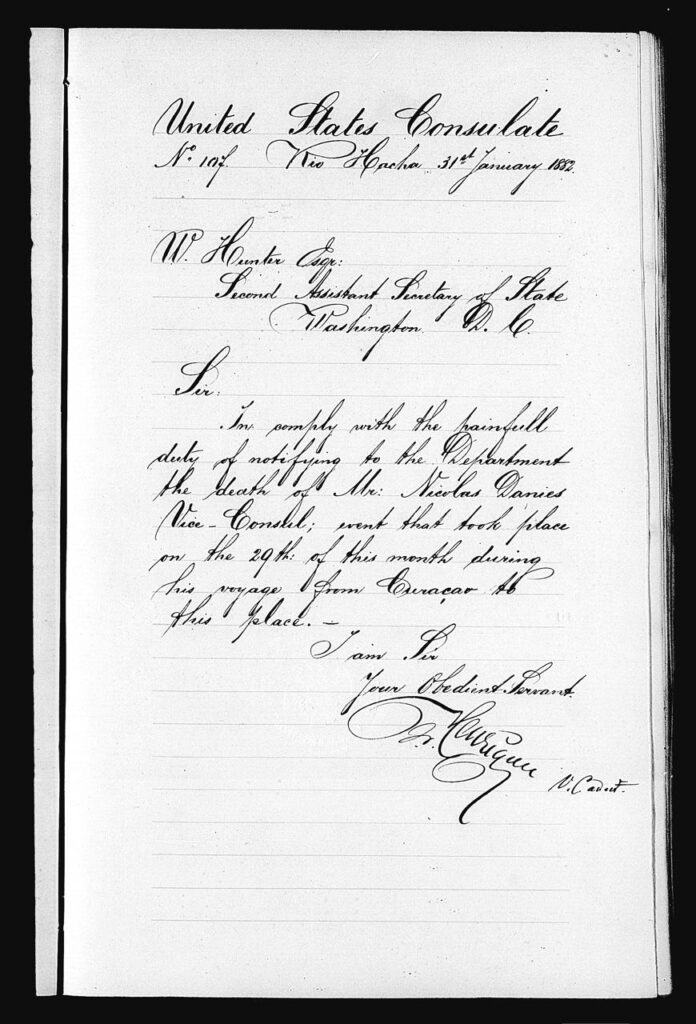 United States Consulate
Nº 107. Rio Hacha 31st January 1882.
W. Hunter Esqr:
Second Assistant Secretary of State
Washington D. C.
Sir:
In comply with the painfull
duty of notifying to the Department
the death of Mr: Nicolas Danies
Vice-Consul; event that took place
on the 29th: of this month during
his voyage from Curaçao to
this place. —
I am Sir
Your Obedient Servant.
V.